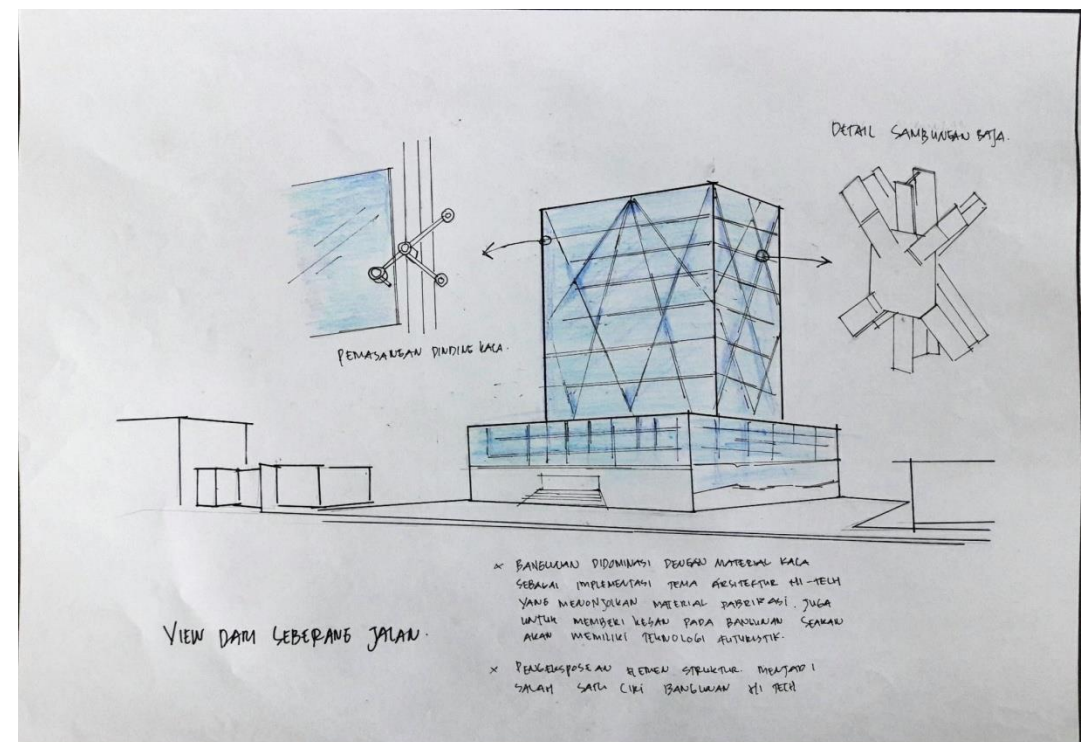 DETAIL SAMBUNGAN BAJA.
PEMASANGAN DINDING KACA.
VIEW DARI SEBERANG JALAN.
× BANGUNAN DIDOMINASI DENGAN MATERIAL KACA
SEBAGAI IMPLEMENTASI TEMA ARSITEKTUR HI-TECH
YANG MENONJOLKAN MATERIAL PABRIKASI. JUGA
UNTUK MEMBERI KESAN PADA BANGUNAN SEAKAN
AKAN MEMILIKI TEKNOLOGI FUTURISTIK.
× PENGEKSPOSEAN ELEMEN STRUKTUR MENJADI
SALAH SATU CIRI BANGUNAN HI TECH